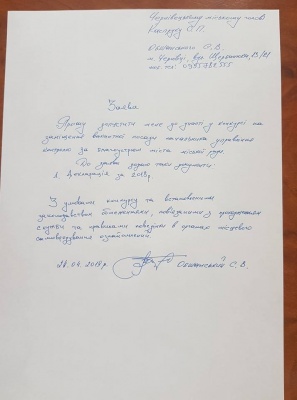 Чернівецькому міському голові
Каспруку О. П.
м. Чернівці, вул. Щербанюка,
Заява
Прошу допустити мене до участі у конкурсі на
заміщення вакантної посади начальника управління
контролю за благоустроєм міста міської ради.
До заяви додаю такі документи:
1. Декларація за 2018р.
З умовами конкурсу та встановленими
законодавством обмеженнями, пов'язаними з проходженням
служби та правилами поведінки в органах місцевого
самоврядування ознайомлений.
С. В.